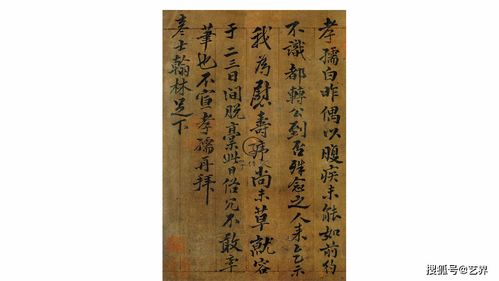 孝孺白昨偶以腹疾未能如前約
不識都轉公到否殊念之人來乞示
我為慰壽號尚未草就容
于二三日間脫稾此日俗冗不敢率
筆也不宣孝孺再拜
彥士翰林足下
搜狐号@艺界